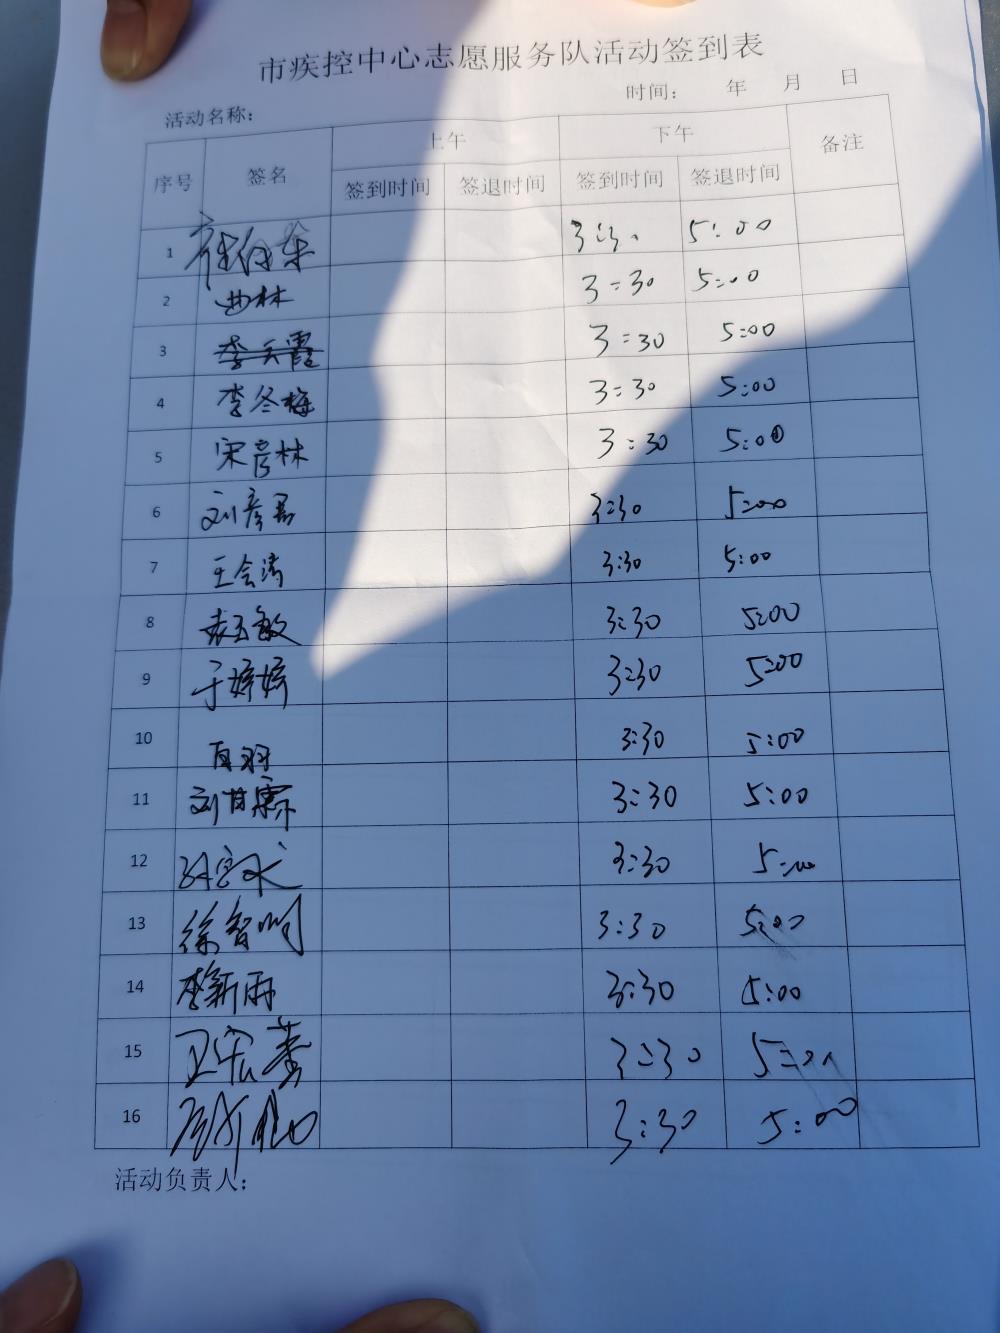 市疾控中心志愿服务队活动签到表
时间： 年 月 日
活动名称：
序号 签名 上午 下午 备注
签到时间 签退时间 签到时间 签退时间
1 3:30 5:00
2 曲林 3:30 5:00
3 李天霞 3:30 5:00
4 李冬梅 3:30 5:00
5 宋彦林 3:30 5:00
6 刘彦君 3:30 5:00
7 王会涛 3:30 5:00
8 袁玉敏 3:30 5:00
9 于婷婷 3:30 5:00
10 3:30 5:00
11 刘甘霖 3:30 5:00
12 3:30 5:00
13 徐智明 3:30 5:00
14 李新雨 3:30 5:00
15 3:30 5:00
16 3:30 5:00
活动负责人：